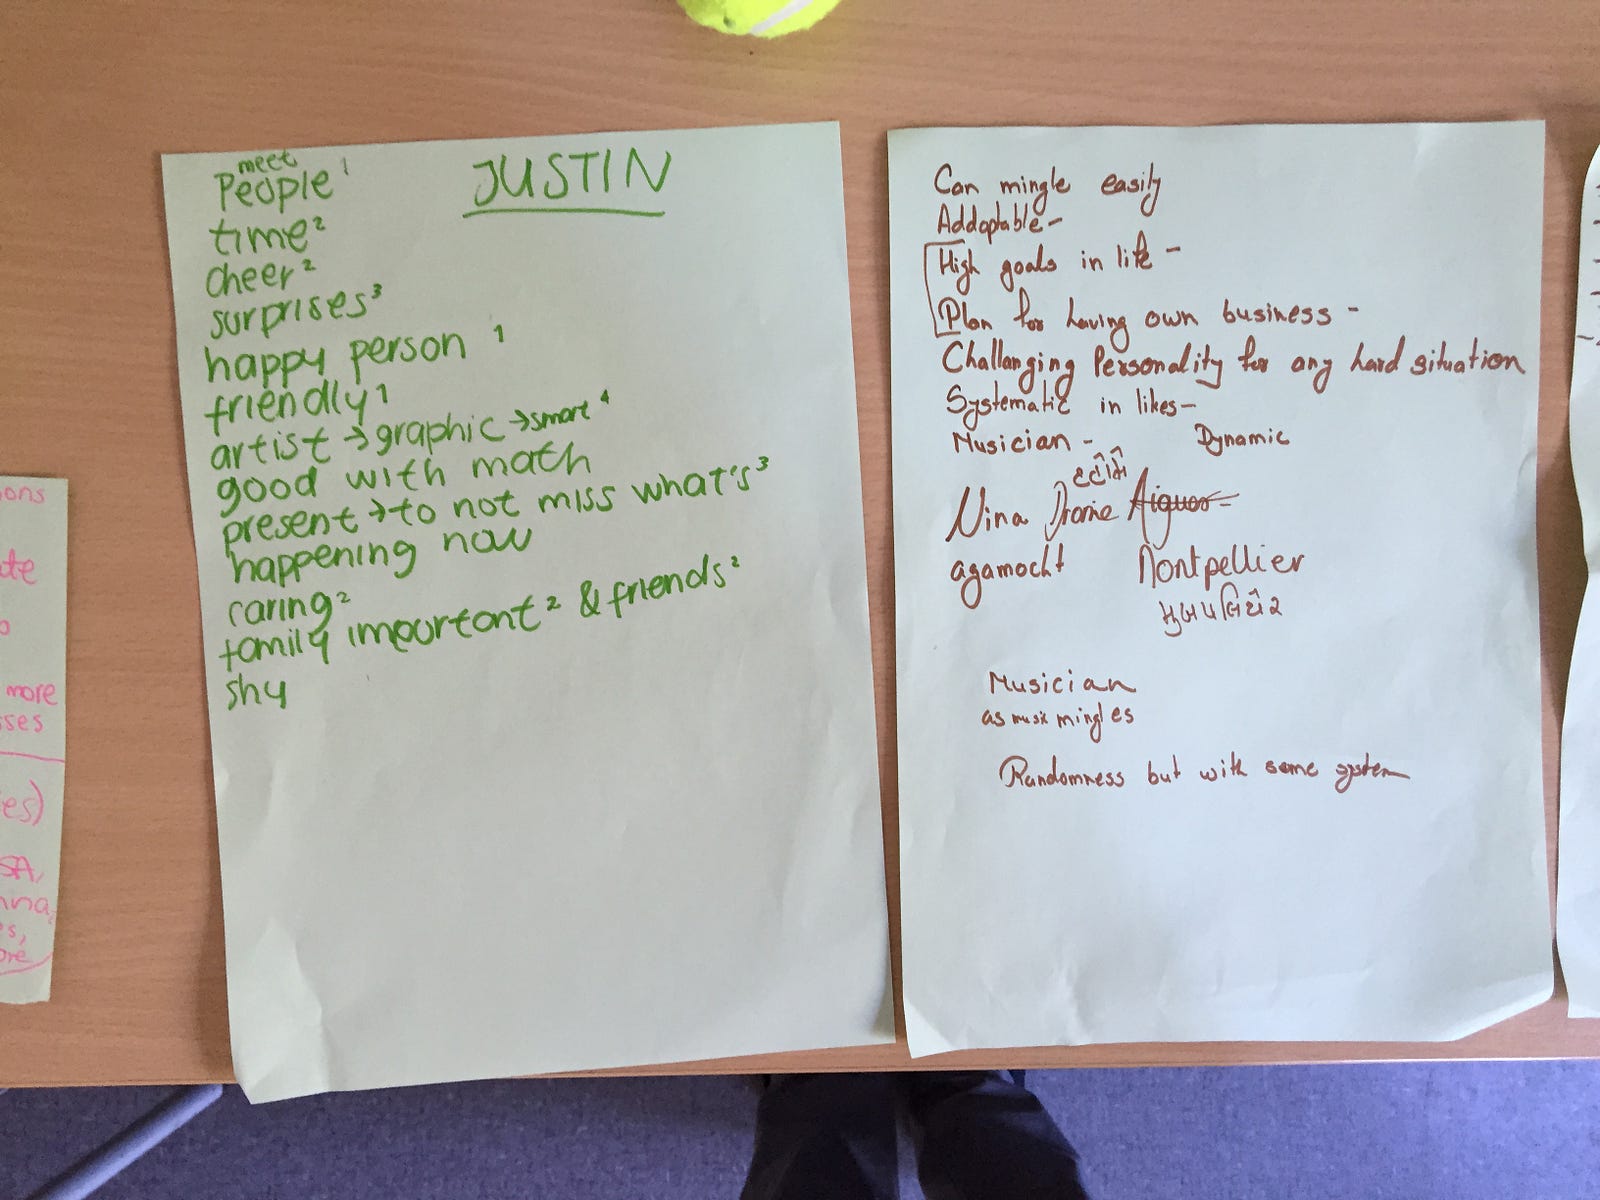 ons
te
o
more
sses
es)
SA,
nna,
es,
ore
JUSTIN
meet
People 1
time 2
cheer 2
surprises 3
happy person 1
friendly 1
artist → graphic → smart 4
good with math
present → to not miss what's 3
happening now
caring 2
family important 2 & friends 2
shy
Can mingle easily
Addoptable -
High goals in life -
Plan for having own business -
Challanging Personality for any hard situation
Systematic in likes -
Musician - Dynamic
Nina Drome Aiguos
agamocht Montpellier
Musician
as music mingles
Randomness but with some system